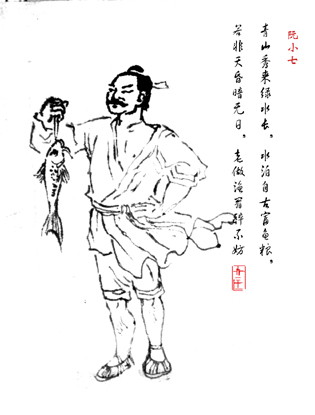 阮小七
青山秀来绿水长。水泊自古富鱼粮。
若非天昏暗无日。老做渔翁醉不妨